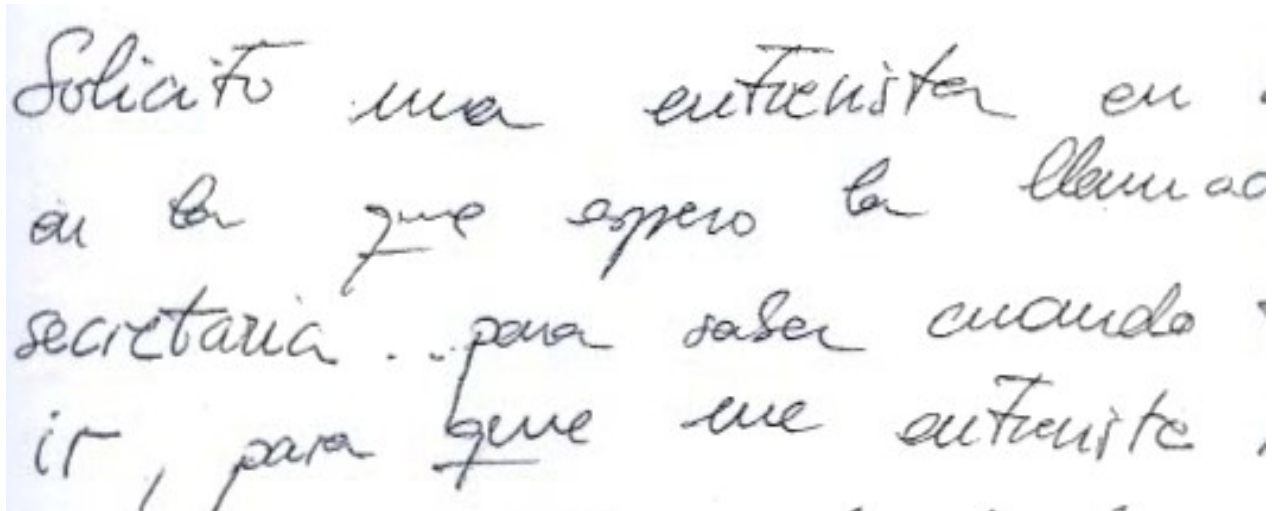 Solicito una entrevista en
en la que espero la llamad
secretaria... para saber cuando
ir, para que me entreviste